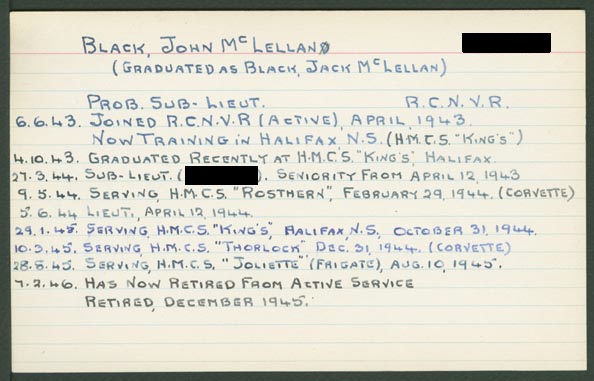 BLACK, JOHN McLELLAND
(GRADUATED AS BLACK, JACK McLELLAN)
PROB. SUB-LIEUT. R.C.N.V.R.
6.6.43. JOINED R.C.N.V.R (ACTIVE), APRIL, 1943.
NOW TRAINING IN HALIFAX, N.S. (H.M.C.S. "KING'S")
4.10.43. GRADUATED RECENTLY AT H.M.C.S. "KING'S", HALIFAX.
27.3.44. SUB-LIEUT. ( ). SENIORITY FROM APRIL 12, 1943
9.5.44. SERVING, H.M.C.S. "ROSTHERN", FEBRUARY 29, 1944. (CORVETTE)
5.6.44 LIEUT., APRIL 12, 1944.
29.1.45. SERVING, H.M.C.S. "KING'S", HALIFAX, N.S., OCTOBER 31, 1944.
10.3.45. SERVING, H.M.C.S. "THORLOCK", DEC. 31, 1944. (CORVETTE)
28.8.45. SERVING, H.M.C.S. "JOLIETTE" (FRIGATE), AUG. 10, 1945.
7.2.46. HAS NOW RETIRED FROM ACTIVE SERVICE
RETIRED, DECEMBER 1945.